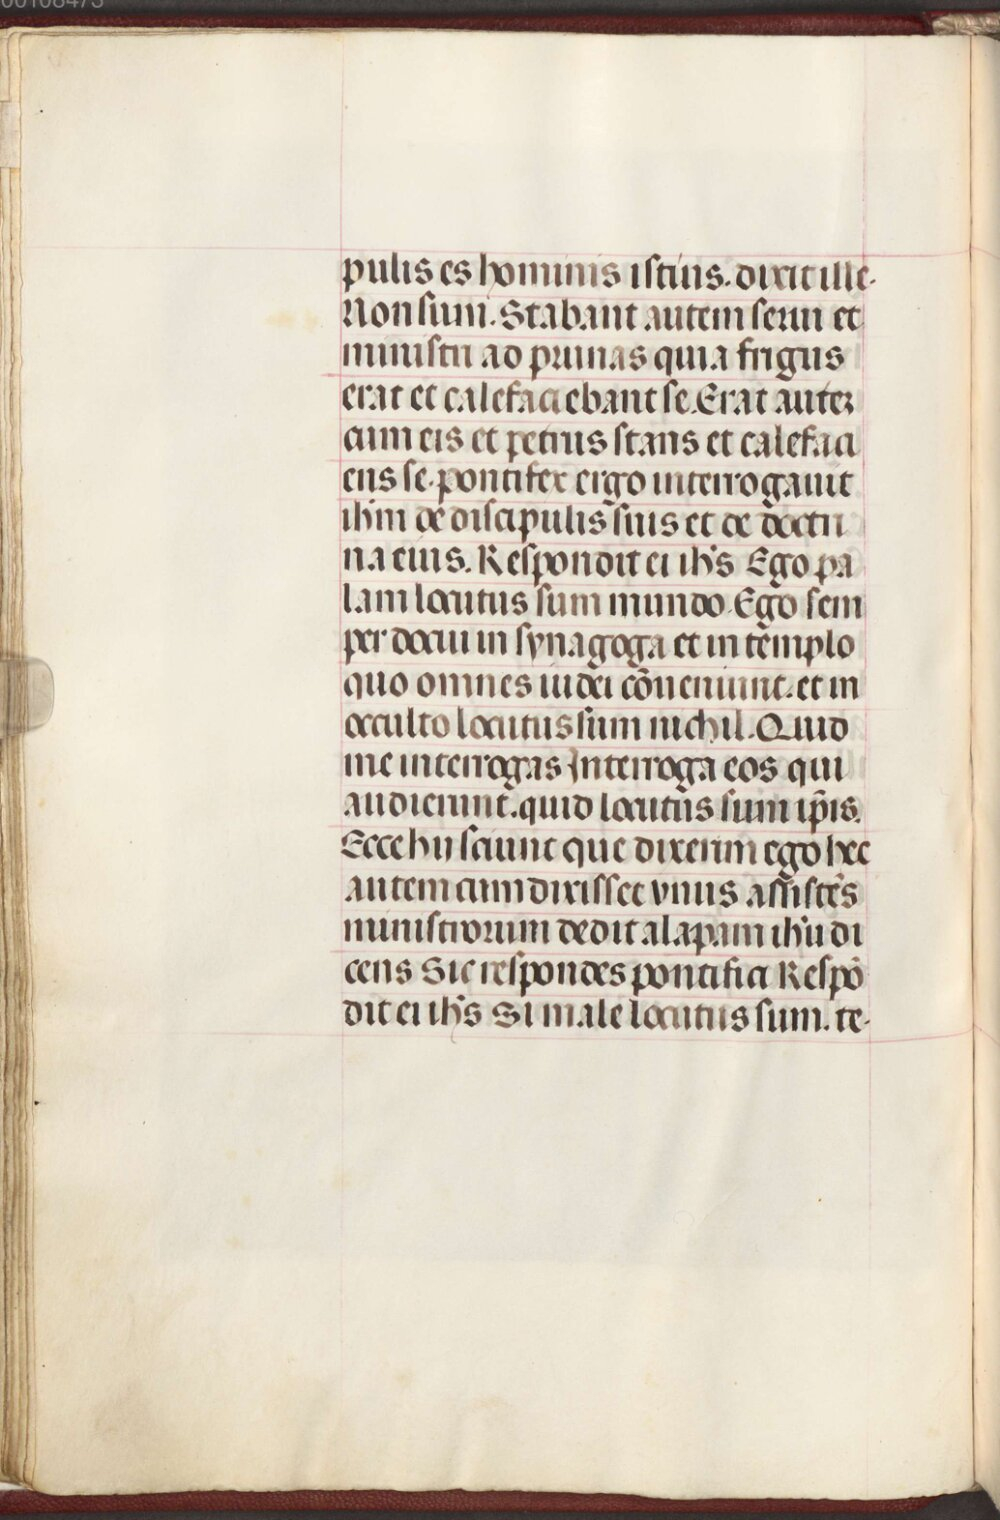 pulis es hominis istius. dixit ille.
Non sum. Stabant autem serui et
ministri ad prunas quia frigus
erat et calefaciebant se. Erat autez
cum eis et petrus stans et calefaci
ens se. pontifex ergo interrogauit
ihm de discipulis suis et de doctri
na eius. Respondit ei ihs Ego pa
lam locutus sum mundo. Ego sem
per docui in synagoga et in templo
quo omnes iudei cōueniunt. et in
occulto locutus sum nichil. Quid
me interrogas Interroga eos qui
audierunt. quid locutus sum ip̄is.
Ecce hii sciunt que dixerim ego hec
autem cum dixisset vnus assistēs
ministrorum dedit alapam ihu di
cens Sic respondes pontifici Respō
dit ei ihs Si male locutus sum. te-